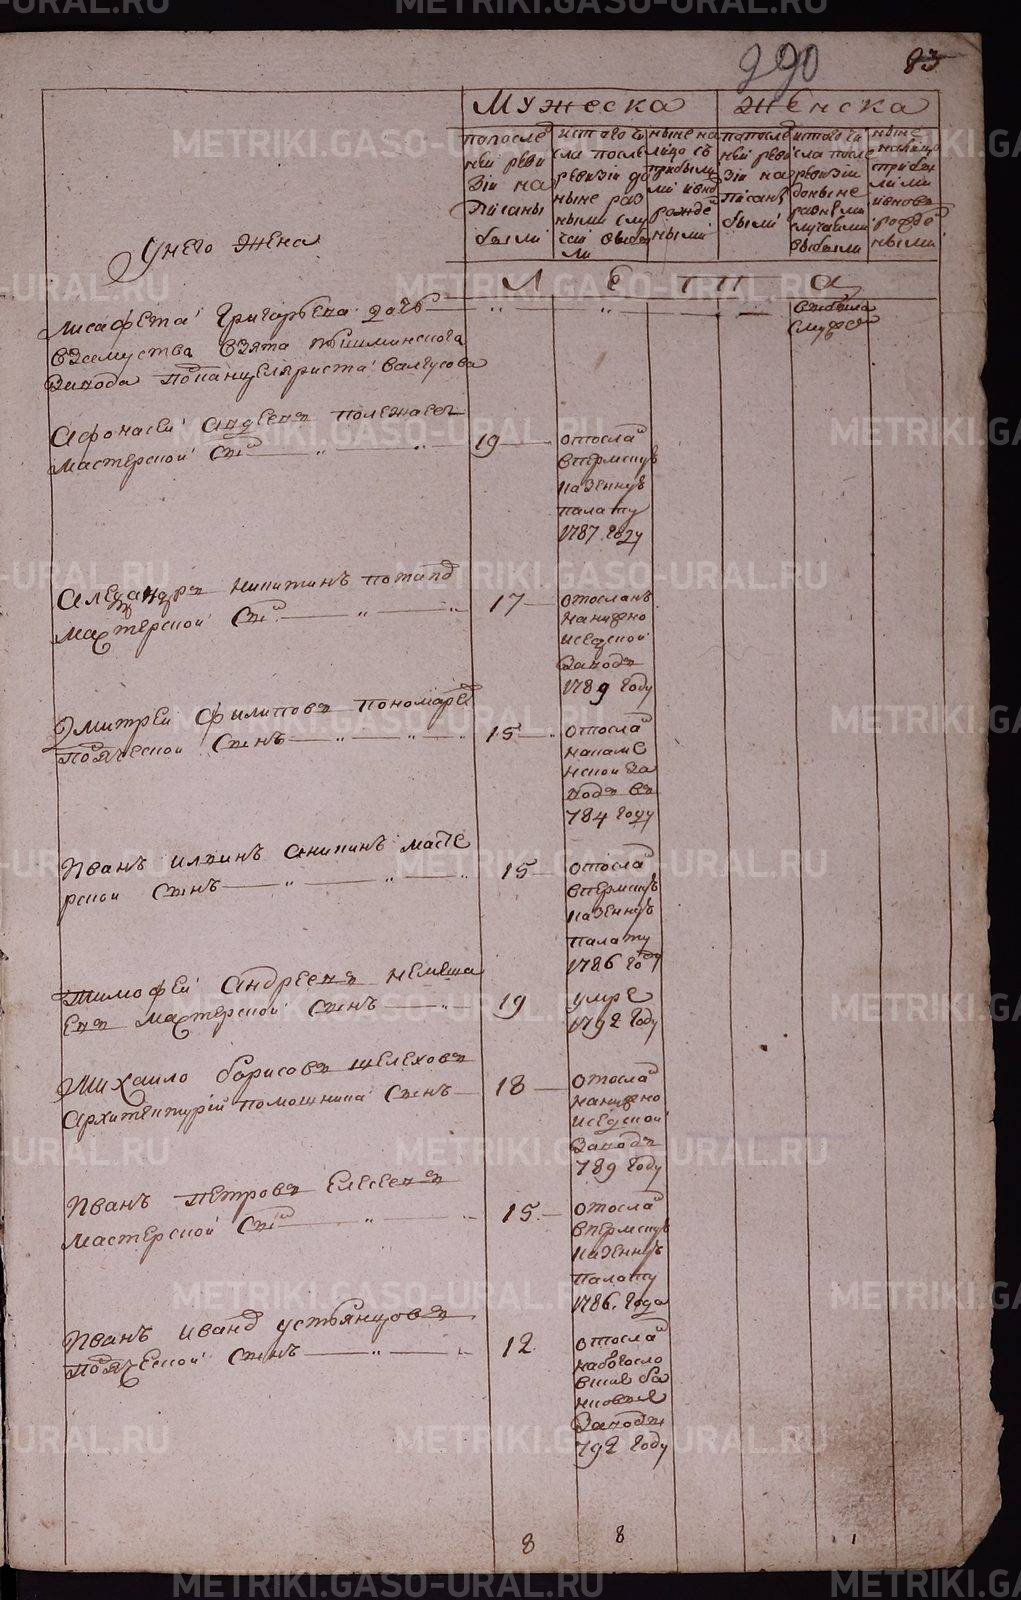 990 83
Мужеска Женска
попосле
ней реви
зіи на
писаны
были
истого чи
сла после
ревизіи до
ныне раз
ными слу
чаи выбы
ли
ныне на
лицо съ
прибылы
ми ивно
рожде
ными
попосле
ней реви
зіи на
писаны
были
истого чи
сла после
ревизіи
доныне
разными
случаями
выбыли
ныне
налицо
прибы
лыми
ивновь
рожде
ными
Лета
Унего жена
Лисафета Григорьева дочь
взамуства взята пышминскога
завода подканцеляриста
выбыла
Афонасей Андреевъ полежаевъ
мастерской сы͞н 19
отосла
впермску
казенну
палату
1787 году
Александръ Никитинъ потапо
мастерской сы͞н 17
отосланъ
нанижно
исецской
заводъ
1789 году
Дмитрей Филиповъ пономаре
подяческой сынъ 15
отосла
накаме
нской за
водъ въ
784 году
Иванъ Ильинъ Аникинъ масте
рской сынъ 15
отосла
впермску
казенну
палату
1786 году
Тимофей Андреевъ
евъ мастерской сынъ 19
умре
1792 году
Михайло Борисовъ шелеховъ
Архитектуріи помошника сынъ 18
отосла
нанижно
исецской
заводъ
789 году
Иванъ Петровъ Елесеевъ
мастерской сы͞н 15
отосла
впермску
казенну
палату
1786 года
Иванъ Ивано устьянцовъ
подяческой сынъ 12
отосла
набогосло
заводъ
792 году
8 8 1
METRIKI.GASO-URAL.RU